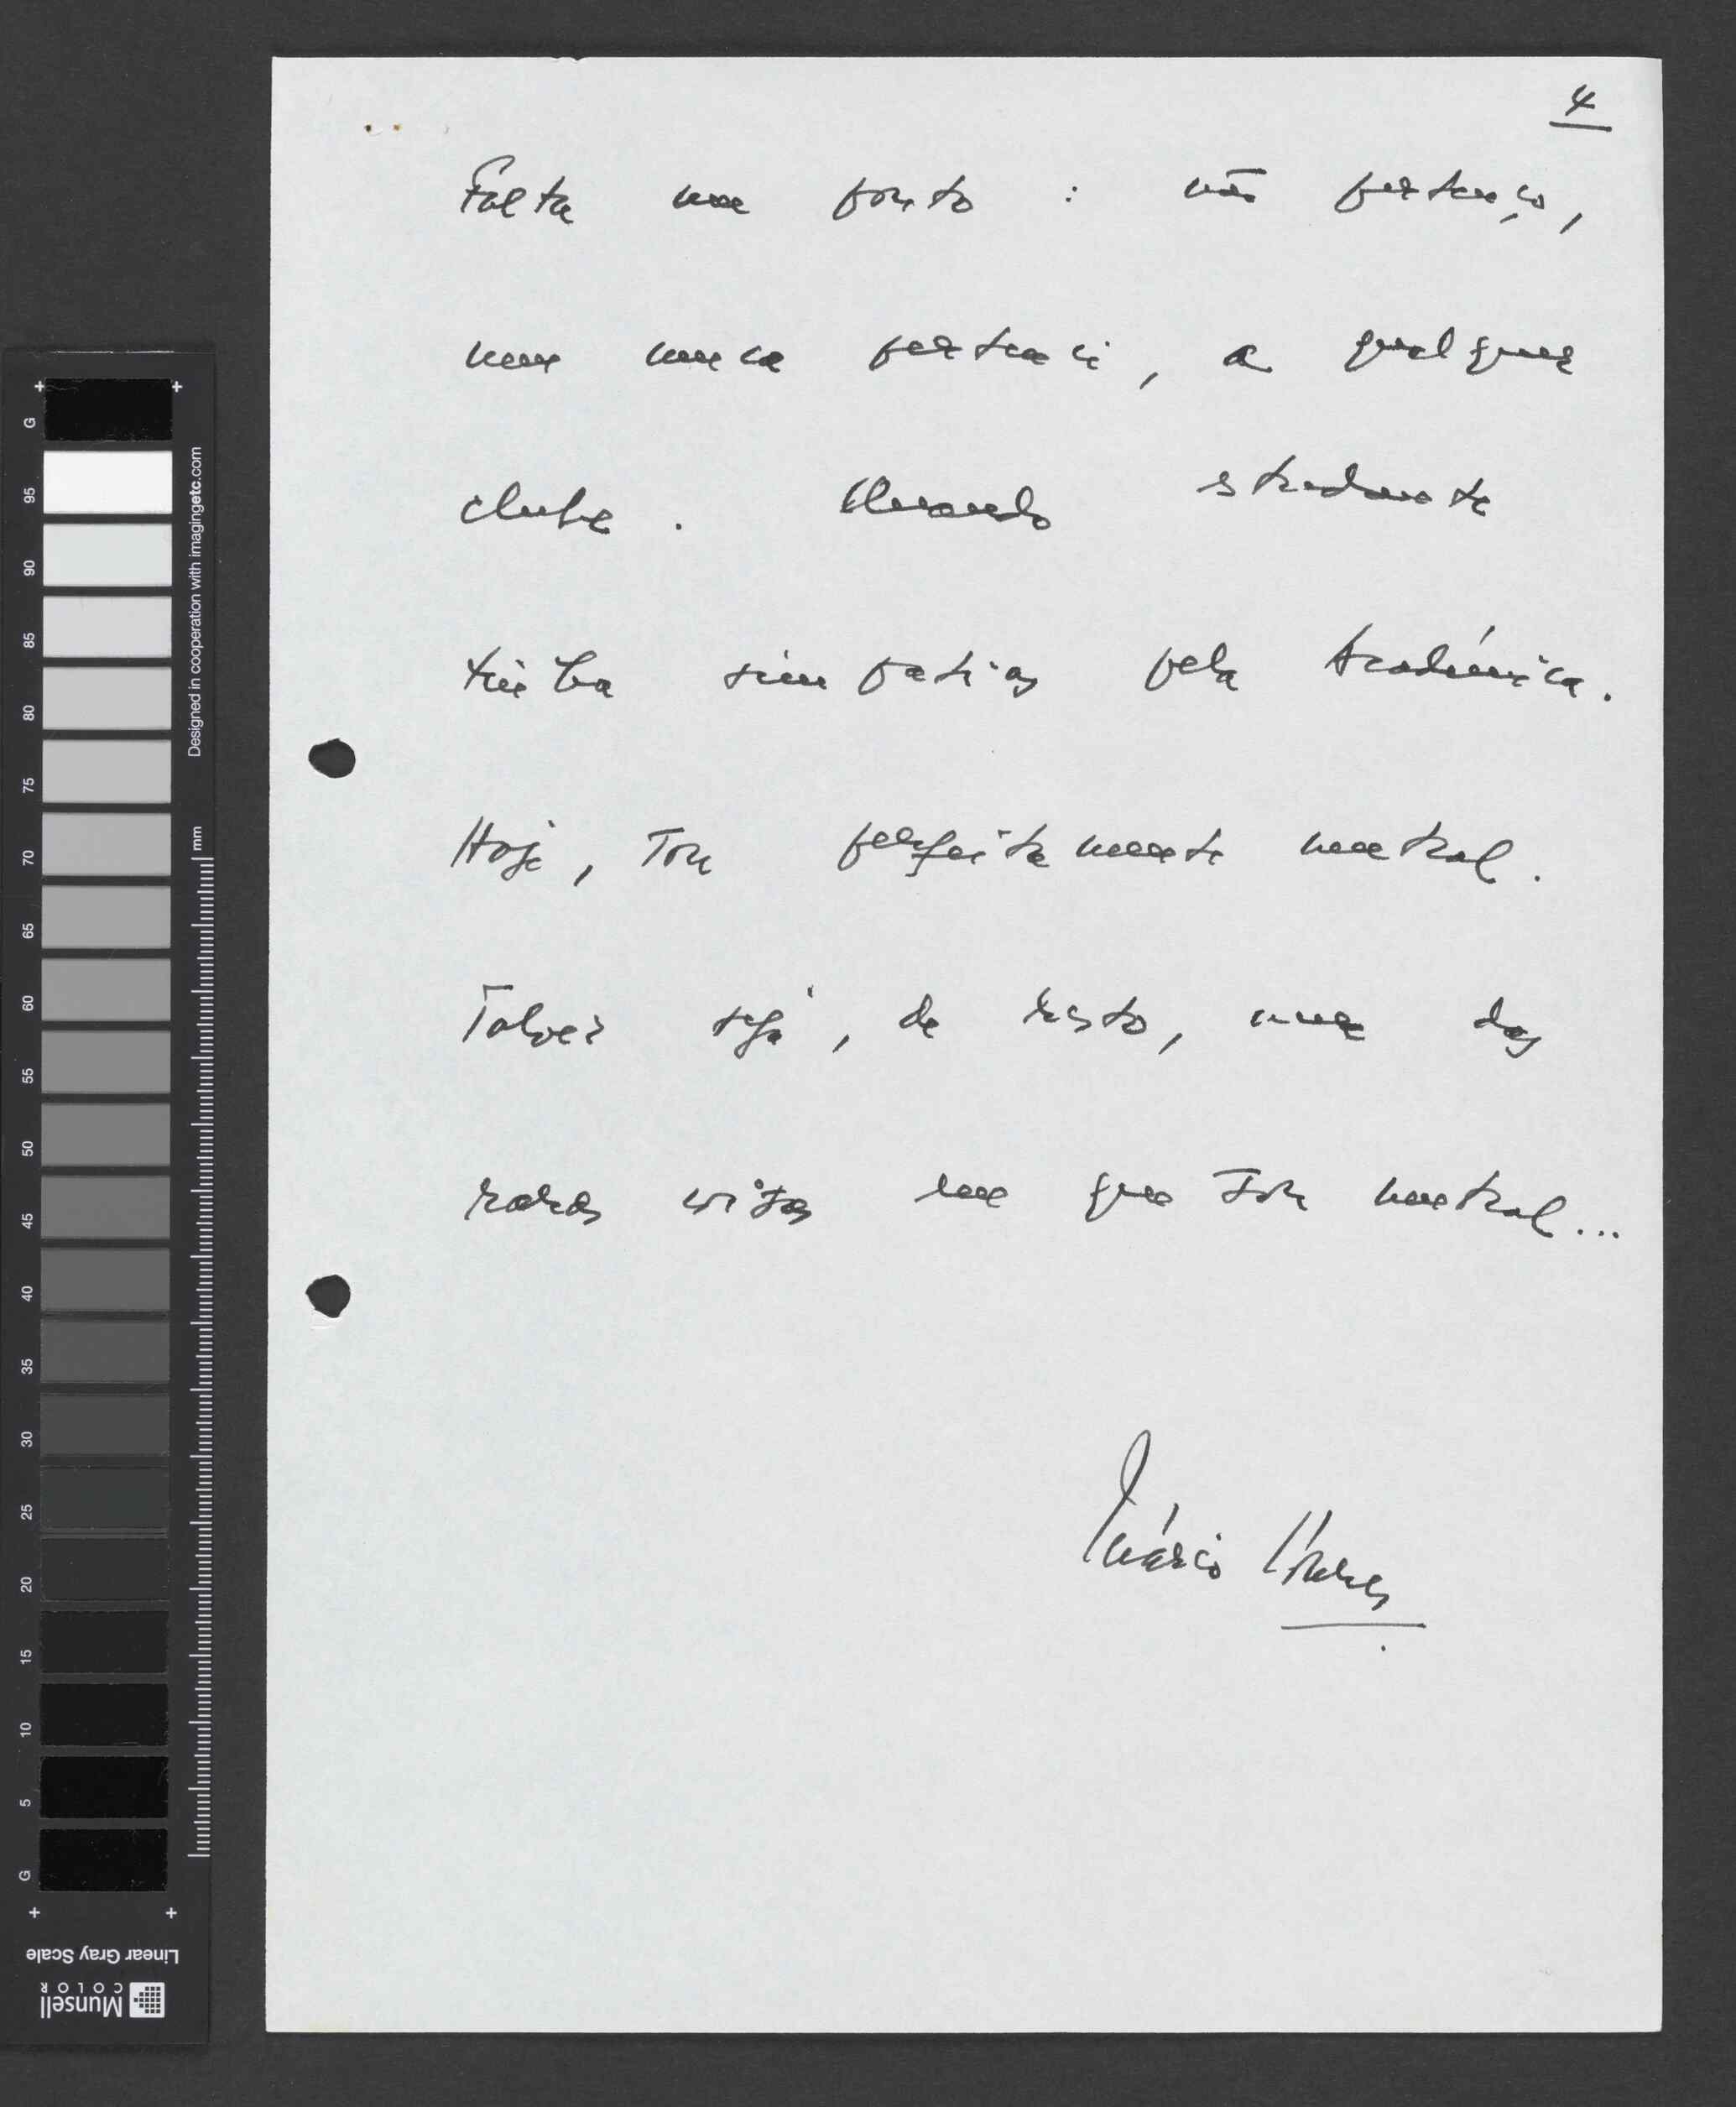 4
Falta um ponto : não pertenço,
nem nunca pertenci, a qualquer
clube . Quando estudante
tinha simpatias pela Académica.
Hoje, sou perfeitamente neutral.
Talvez seja, de resto, uma das
raras coisas em que sou neutral...
Mário Soares
G
95
90
85
80
75
70
65
60
55
50
45
40
35
30
25
20
15
10
5
G
Designed in cooperation with imagingetc.com
mm
Linear Gray Scale
Munsell
COLOR